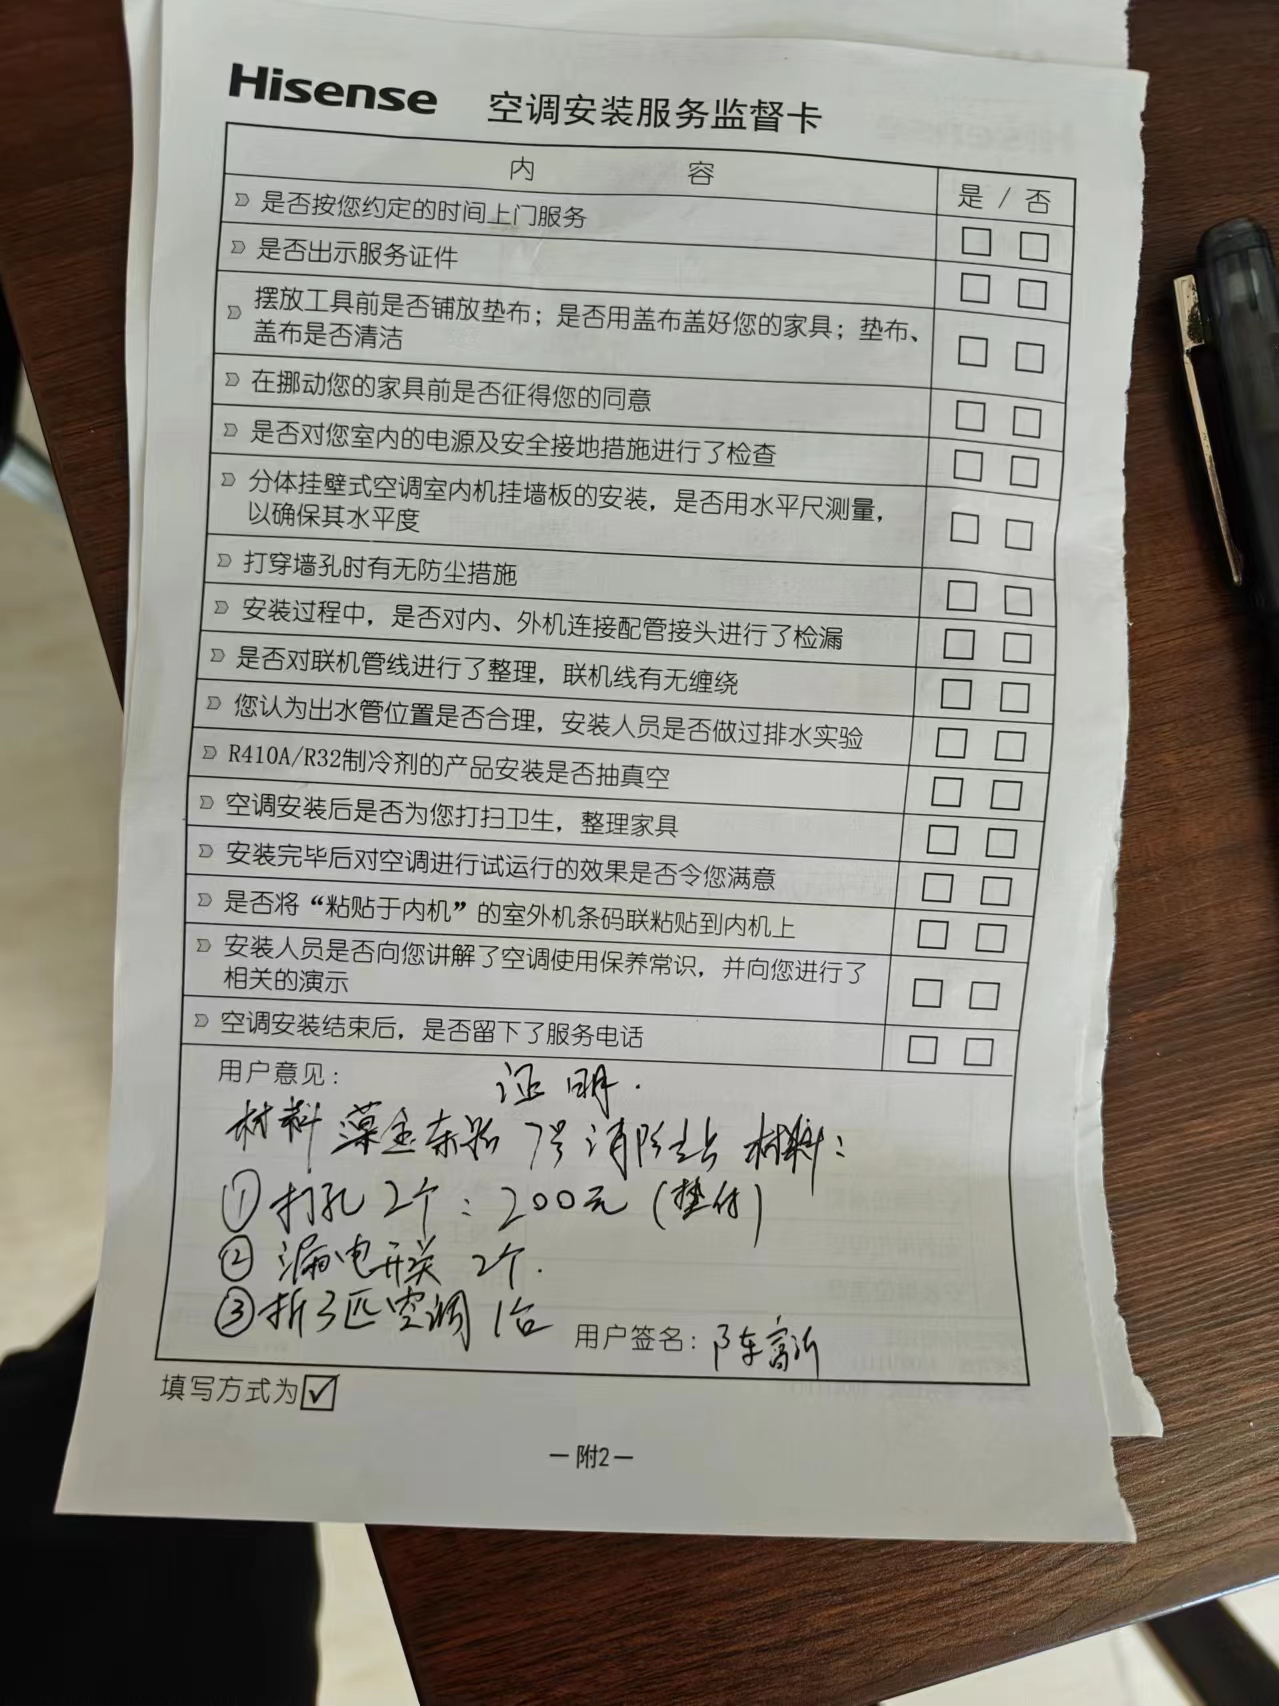 Hisense 空调安装服务监督卡
内 容 是 / 否
是否按您约定的时间上门服务 □ □
是否出示服务证件 □ □
摆放工具前是否铺放垫布；是否用盖布盖好您的家具；垫布、
盖布是否清洁 □ □
在挪动您的家具前是否征得您的同意 □ □
是否对您室内的电源及安全接地措施进行了检查 □ □
分体挂壁式空调室内机挂墙板的安装，是否用水平尺测量，
以确保其水平度 □ □
打穿墙孔时有无防尘措施 □ □
安装过程中，是否对内、外机连接配管接头进行了检漏 □ □
是否对联机管线进行了整理，联机线有无缠绕 □ □
您认为出水管位置是否合理，安装人员是否做过排水实验 □ □
R410A/R32制冷剂的产品安装是否抽真空 □ □
空调安装后是否为您打扫卫生，整理家具 □ □
安装完毕后对空调进行试运行的效果是否令您满意 □ □
是否将“粘贴于内机”的室外机条码联粘贴到内机上 □ □
安装人员是否向您讲解了空调使用保养常识，并向您进行了
相关的演示 □ □
空调安装结束后，是否留下了服务电话 □ □
用户意见： 证明.
材料 7号消防站 材料：
① 打孔 2个：200元（垫付）
② 漏电开关 2个.
③ 拆3匹空调 1台
用户签名：陈
填写方式为☑
— 附2 —